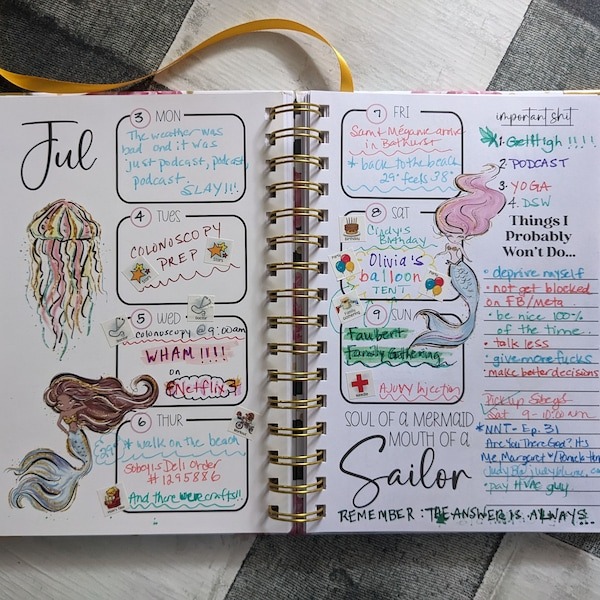 Jul
3 MON
The weather was
bad and it was
just podcast, podcast,
podcast.
SLAY!!!
4 TUES
COLONOSCOPY
PREP
5 WED
colonoscopy @ 9:00am
WHAM!!!!
on
Netflix
6 THUR
* walk on the beach
Sobeys Deli Order
#1295886
And there were crafts!!
7 FRI
Sam & Mégane arrive
in Bathurst
* back to the beach
29° feels 38°
8 SAT
Cindy's
Birthday
Olivia's
balloon
TENT
9 SUN
Faubert
Family Gathering
Ajovy Injection
SOUL OF A MERMAID
MOUTH OF A
Sailor
REMEMBER: THE ANSWER IS ALWAYS...
important shit
1. Get High!!!!
2. PODCAST
3. YOGA
4. DSW
Things I
Probably
Won't Do...
• deprive myself
• not get blocked
on FB/Meta
• be nice 100%
of the time.
• talk less
• give more fucks
• make better decisions
Pick up Sobeys
Sat 9-10:00am
* NNT - Ep. 31
Are You There God? It's
Me, Margaret
• pay HVAC guy